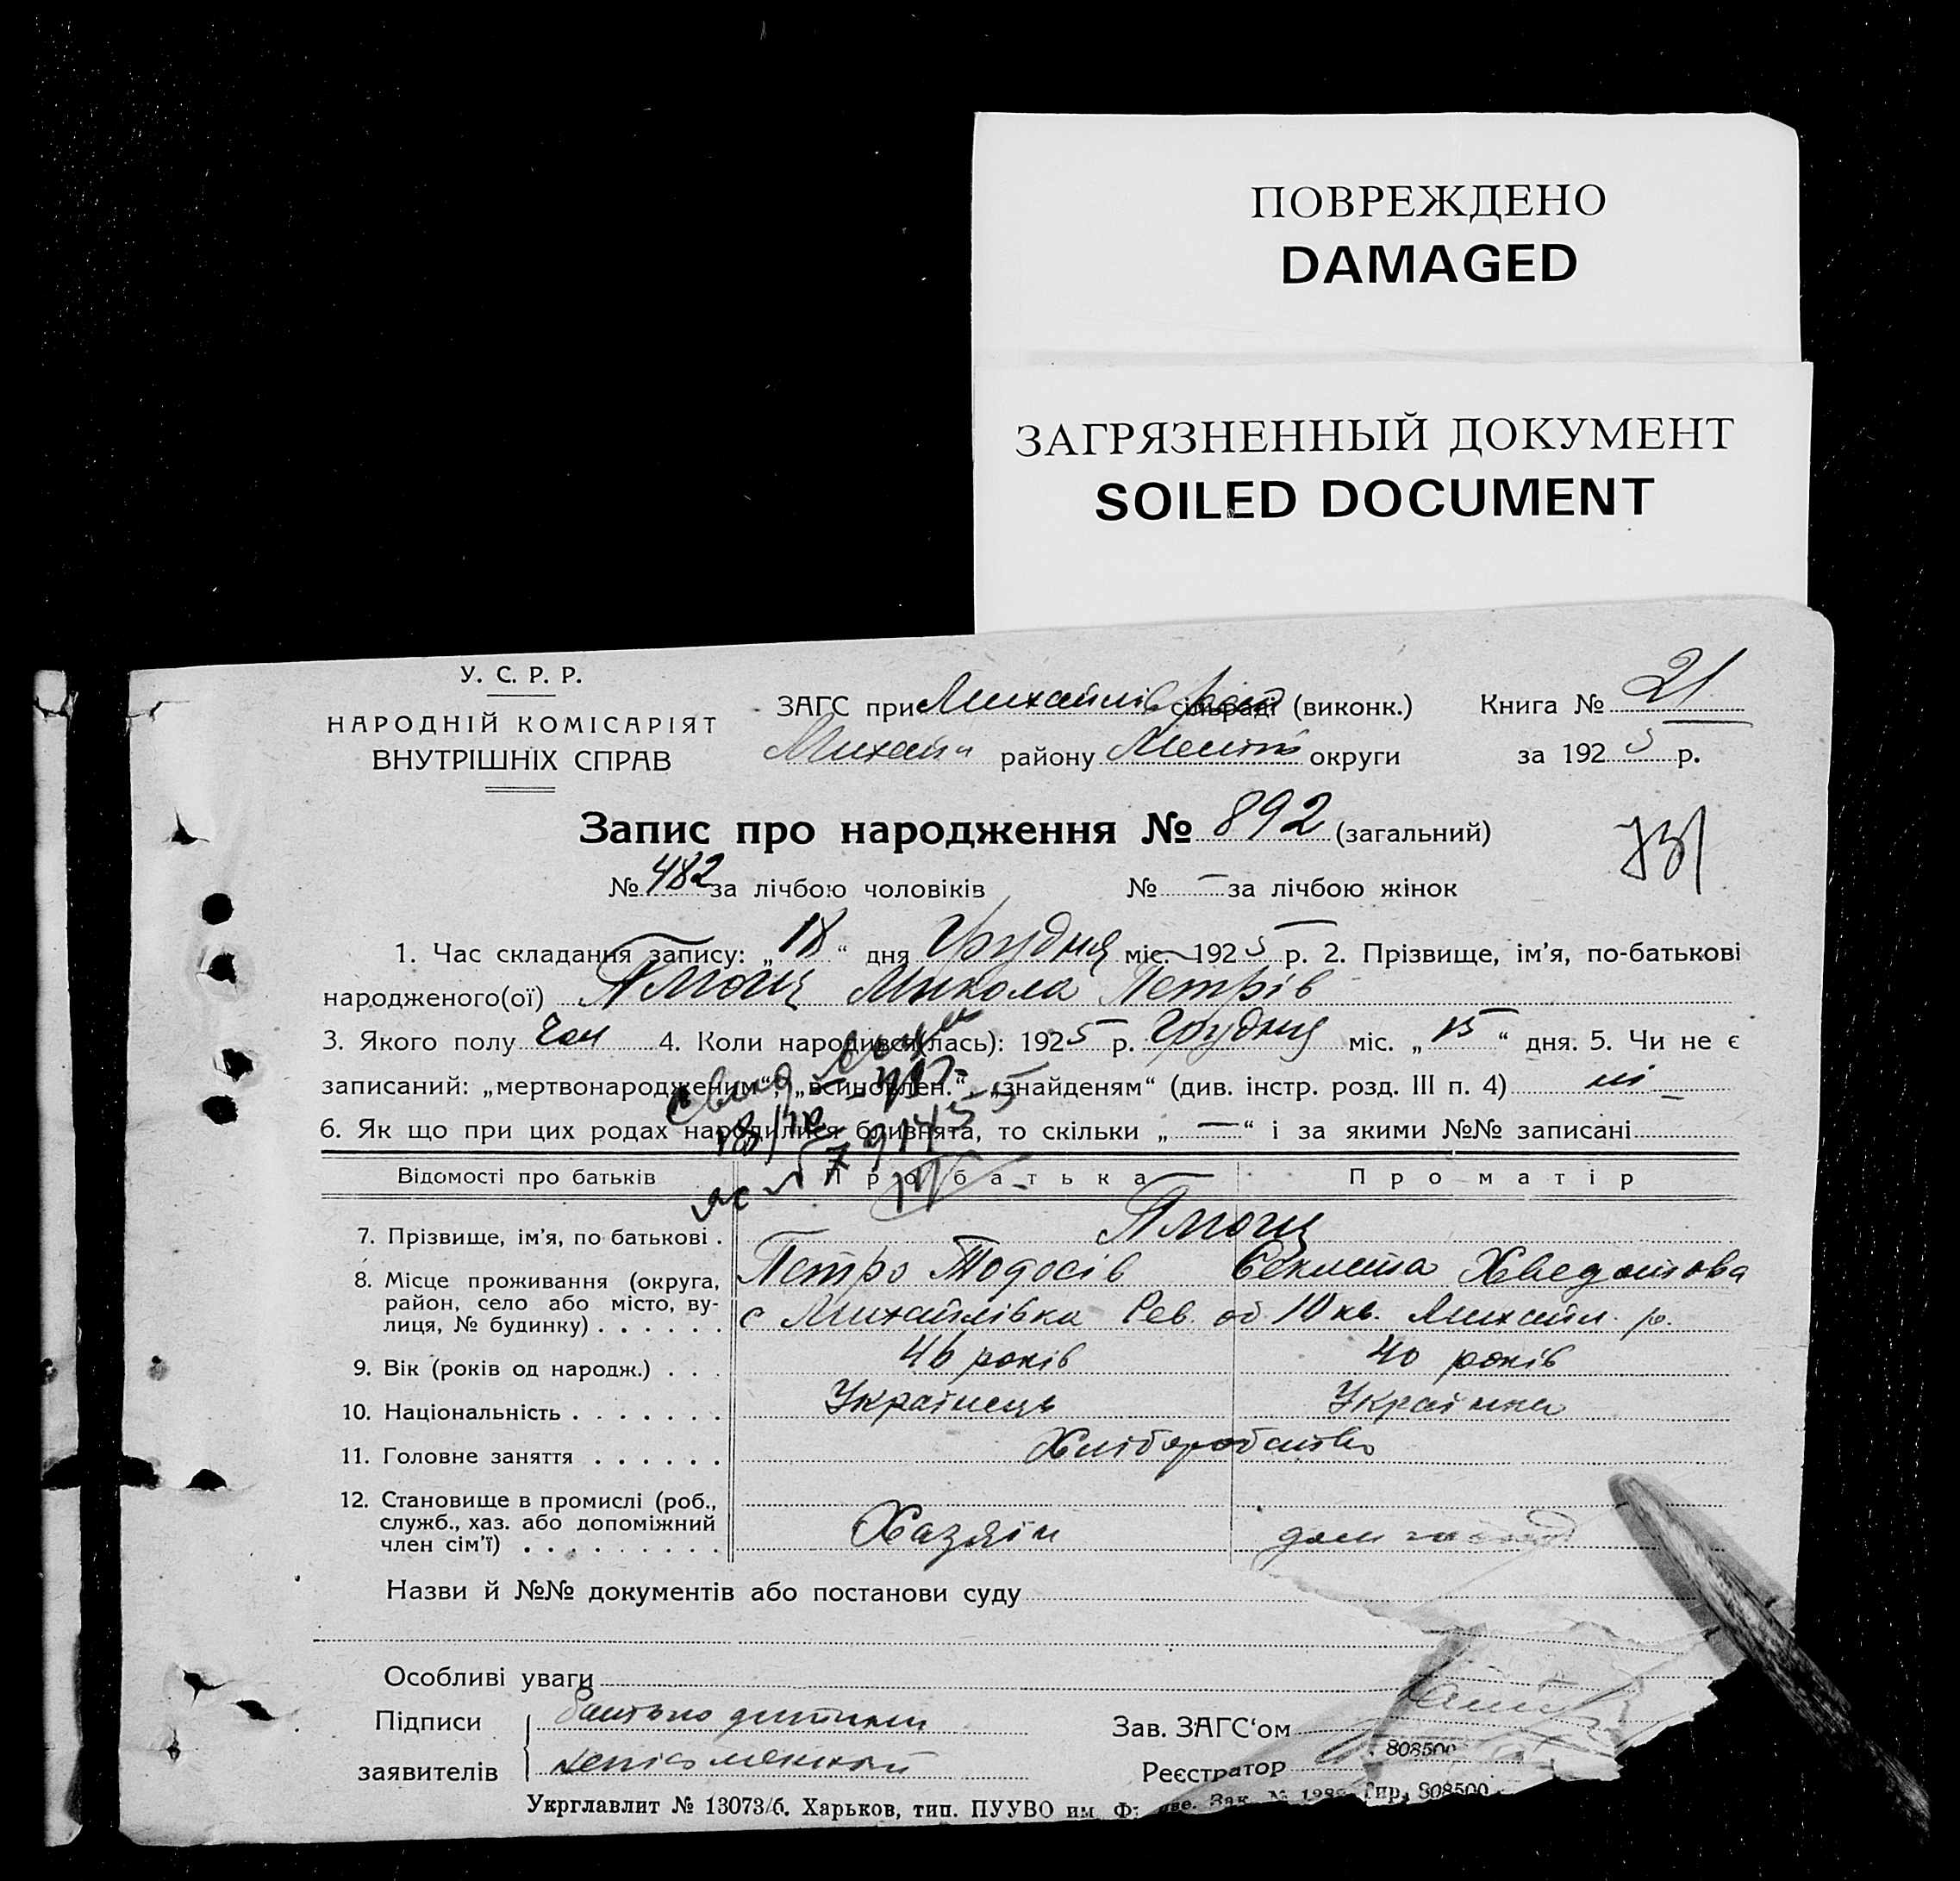 ПОВРЕЖДЕНО
DAMAGED
ЗАГРЯЗНЕННЫЙ ДОКУМЕНТ
SOILED DOCUMENT
У. С. Р. Р.
НАРОДНІЙ КОМІСАРІЯТ
ВНУТРІШНІХ СПРАВ
ЗАГС при Михайлів сільраді (виконк.) Книга № 21
Михайл району Меліт округи за 1925 р.
Запис про народження № 892 (загальний)
731
№ 482 за лічбою чоловіків № — за лічбою жінок
1. Час складання запису: „18“ дня Грудня міс. 1925 р. 2. Прізвище, ім'я, по-батькові
народженого(ої) Микола Петрів
3. Якого полу Чол 4. Коли народився(лась): 1925 р. Грудня міс. „15“ дня. 5. Чи не є
записаний: „мертвонародженим“, „всиновлен.“ „знайденям“ (див. інстр. розд. III п. 4) ні
6. Як що при цих родах народилися близнята, то скільки „—“ і за якими №№ записані
Відомості про батьків Про батька Про матір
7. Прізвище, ім'я, по батькові .
Петро Тодосів Секлета Хведотова
8. Місце проживання (округа,
район, село або місто, ву-
лиця, № будинку) . . . . . .
с Михайлівка Рев. об 10 кв. Михайл. р.
9. Вік (років од народж.) . . . 46 років 40 років
10. Національність . . . . . . . Українець Українка
11. Головне заняття . . . . . . Хліборобство
12. Становище в промислі (роб.,
служб., хаз. або допоміжний
член сім'ї) . . . . . . . . . Хазяїн дом
Назви й №№ документів або постанови суду
Особливі уваги
Підписи батько дитини
заявителів неписьменний
Зав. ЗАГС‘ом
Реєстратор
808500
Укрглавлит № 13073/б. Харьков, тип. ПУУВО им. Ф: Зак. № Тир. 808500